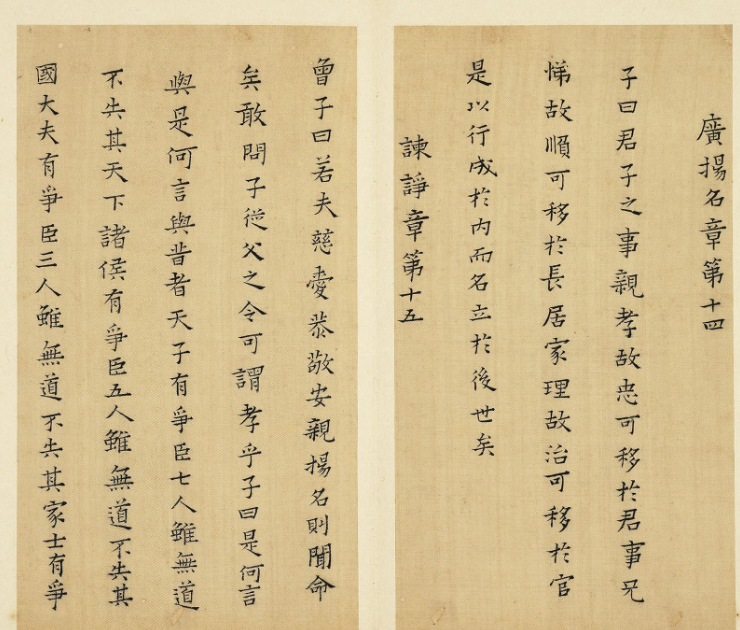 廣揚名章第十四
子曰君子之事親孝故忠可移於君事兄
悌故順可移於長居家理故治可移於官
是以行成於内而名立於後世矣
諫諍章第十五
曾子曰若夫慈愛恭敬安親揚名則聞命
矣敢問子從父之令可謂孝乎子曰是何言
與是何言與昔者天子有爭臣七人雖無道
不失其天下諸侯有爭臣五人雖無道不失其
國大夫有爭臣三人雖無道不失其家士有爭